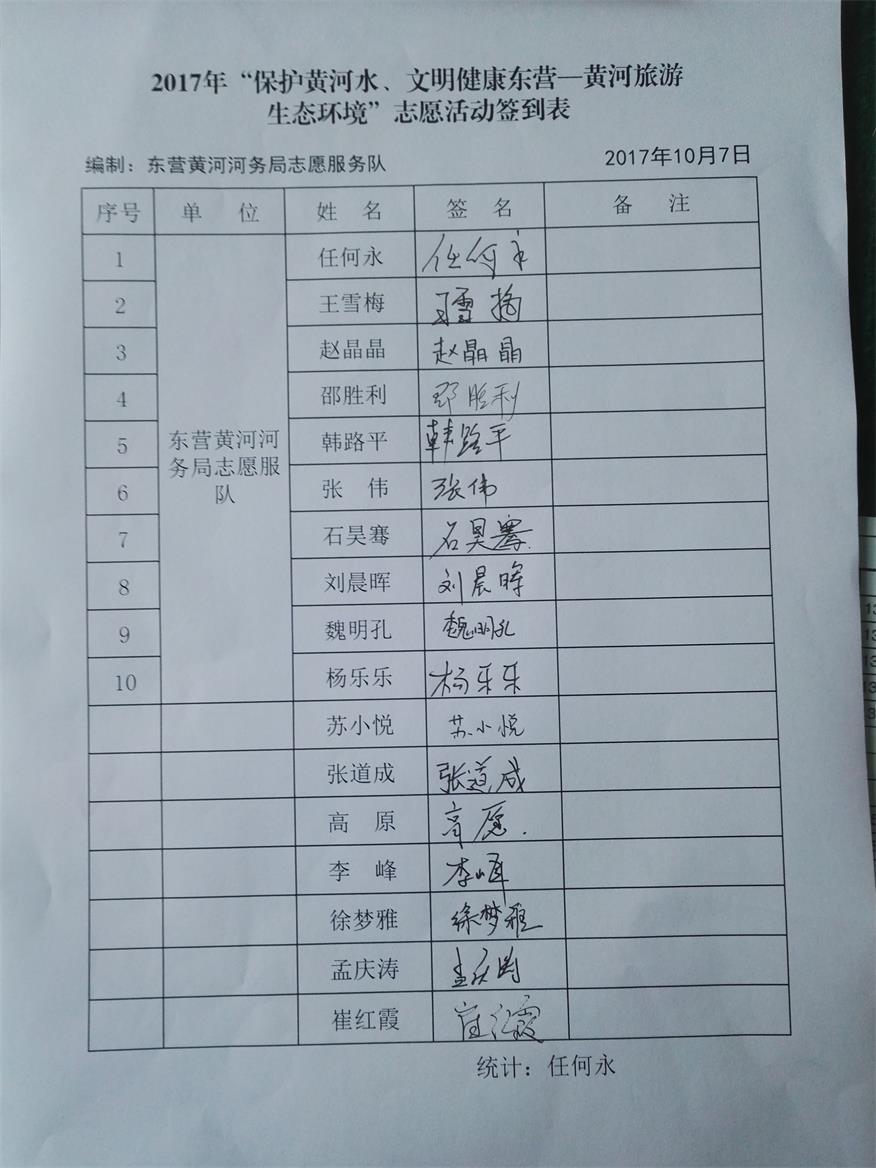 2017年“保护黄河水、文明健康东营—黄河旅游
生态环境”志愿活动签到表
编制：东营黄河河务局志愿服务队 2017年10月7日
序号 单 位 姓 名 签 名 备 注
1 任何永 任何永
2 王雪梅 王雪梅
3 赵晶晶 赵晶晶
4 邵胜利 邵胜利
5 韩路平 韩路平
东营黄河河
务局志愿服
队
6 张 伟 张伟
7 石昊骞 石昊骞
8 刘晨晖 刘晨晖
9 魏明孔 魏明孔
10 杨乐乐 杨乐乐
苏小悦 苏小悦
张道成 张道成
高 原 高愿
李 峰 李峰
徐梦雅 徐梦雅
孟庆涛 孟庆涛
崔红霞 崔红霞
统计：任何永
13
13
13
13